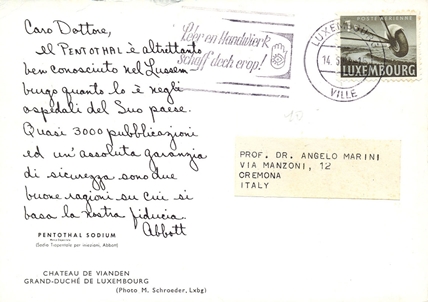 Caro Dottore,
il PENTOTHAL è altrettanto
ben conosciuto nel Lussem-
burgo quanto lo è negli
ospedali del Suo paese.
Quasi 3000 pubblicazioni
ed un'assoluta garanzia
di sicurezza sono due
buone ragioni su cui si
basa la nostra fiducia.
Abbott
PENTOTHAL SODIUM
(Sodio Tiopentale per iniezioni, Abbott)
CHATEAU DE VIANDEN
GRAND-DUCHÉ DE LUXEMBOURG
(Photo M. Schroeder, Lxbg)
Léier en Handwierk
schaff dech erop!
LUXEMBOURG
14. 5
VILLE
POSTE AÉRIENNE
LUXEMBOURG
PROF. DR. ANGELO MARINI
VIA MANZONI, 12
CREMONA
ITALY